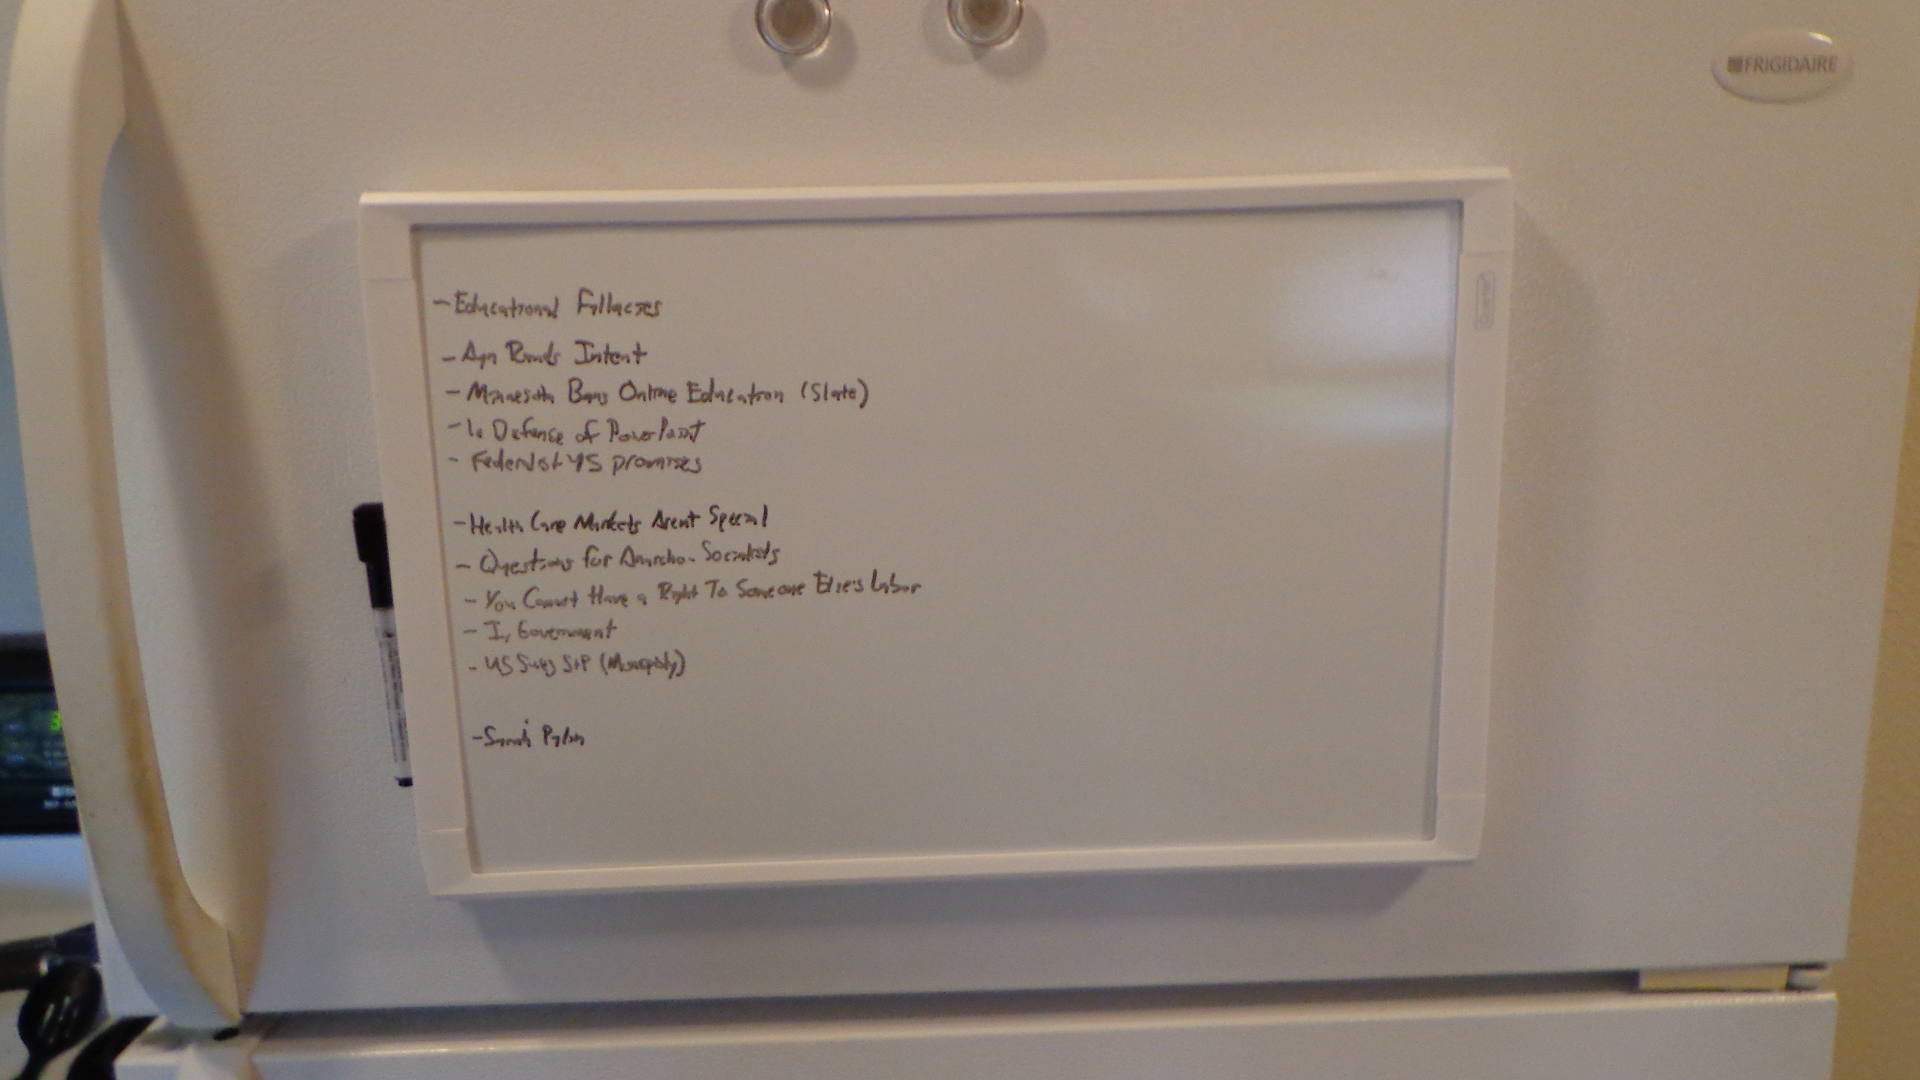 FRIGIDAIRE
- Educational Fallacies
- Ayn Rands Intent
- Minnesota Bans Online Education (Slate)
- In Defense of PowerPoint
- Federalist 45 promises
- Health Care Markets Arent Special
- Questions for Anarcho-Socialists
- You Cannot Have a Right To Someone Else's Labor
- I, Government
- US Sues S+P (Monopoly)
- Sarah Palin